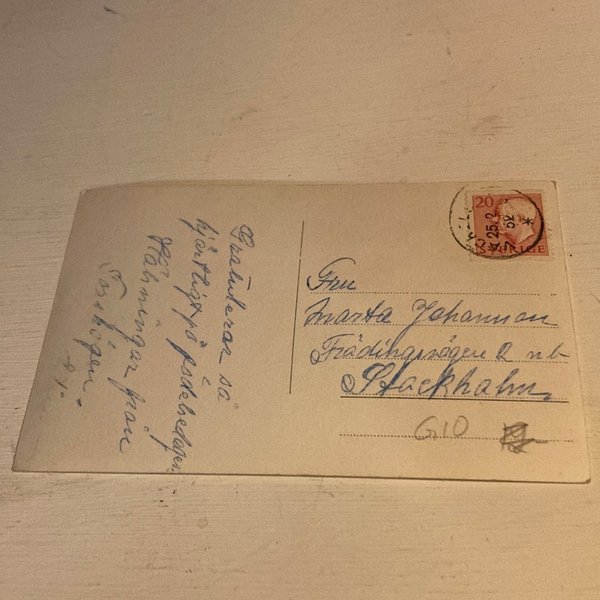 Gratulerar så
hjärtligt på födelsedagen
Hälsningar från
Fru
Marta Johansson
2 nb
Stockholm
G10
20
25.2
52
SVERIGE